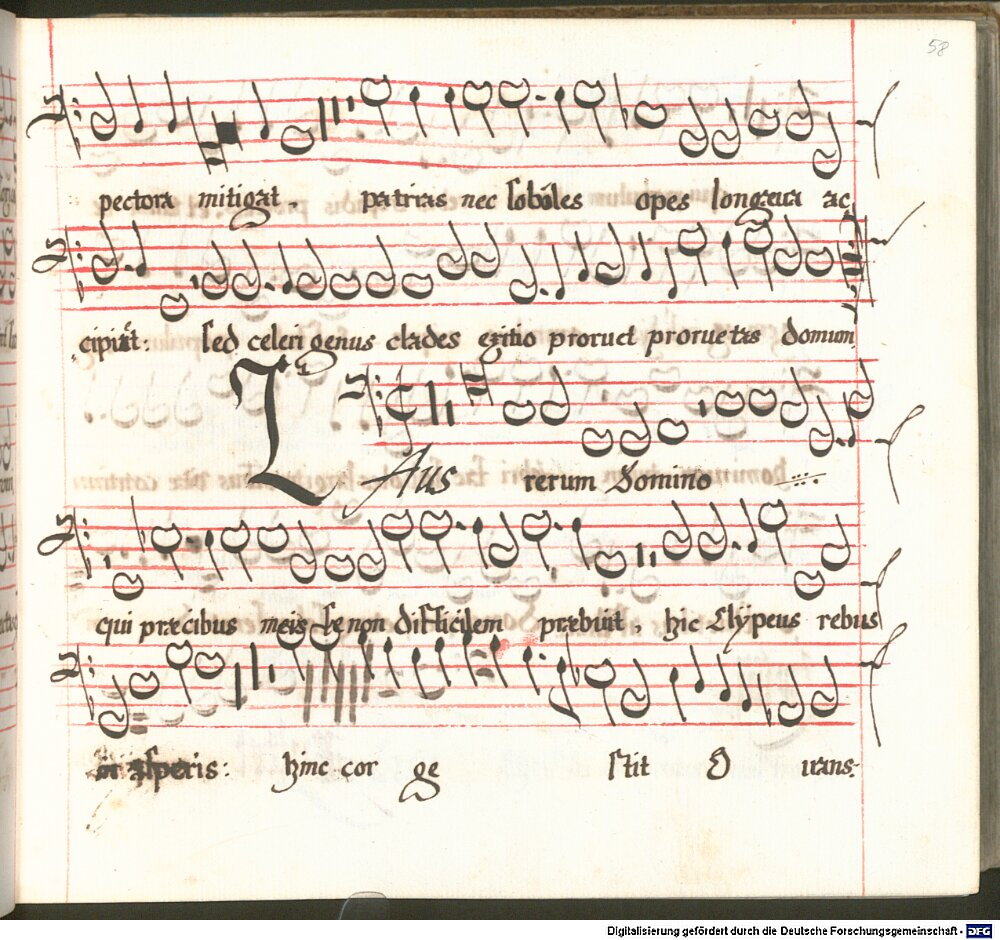 58
pectora mitigat. patrias nec soboles opes longæua ac
cipiät: sed celeri genus clades exitio proruet proruet as domum
LAus rerum Domino
qui præcibus meis se non difficilem præbuit, hic Clÿpeus rebus
in asperis: hinc cor ge stit O urans:
Digitalisierung gefördert durch die Deutsche Forschungsgemeinschaft - DFG